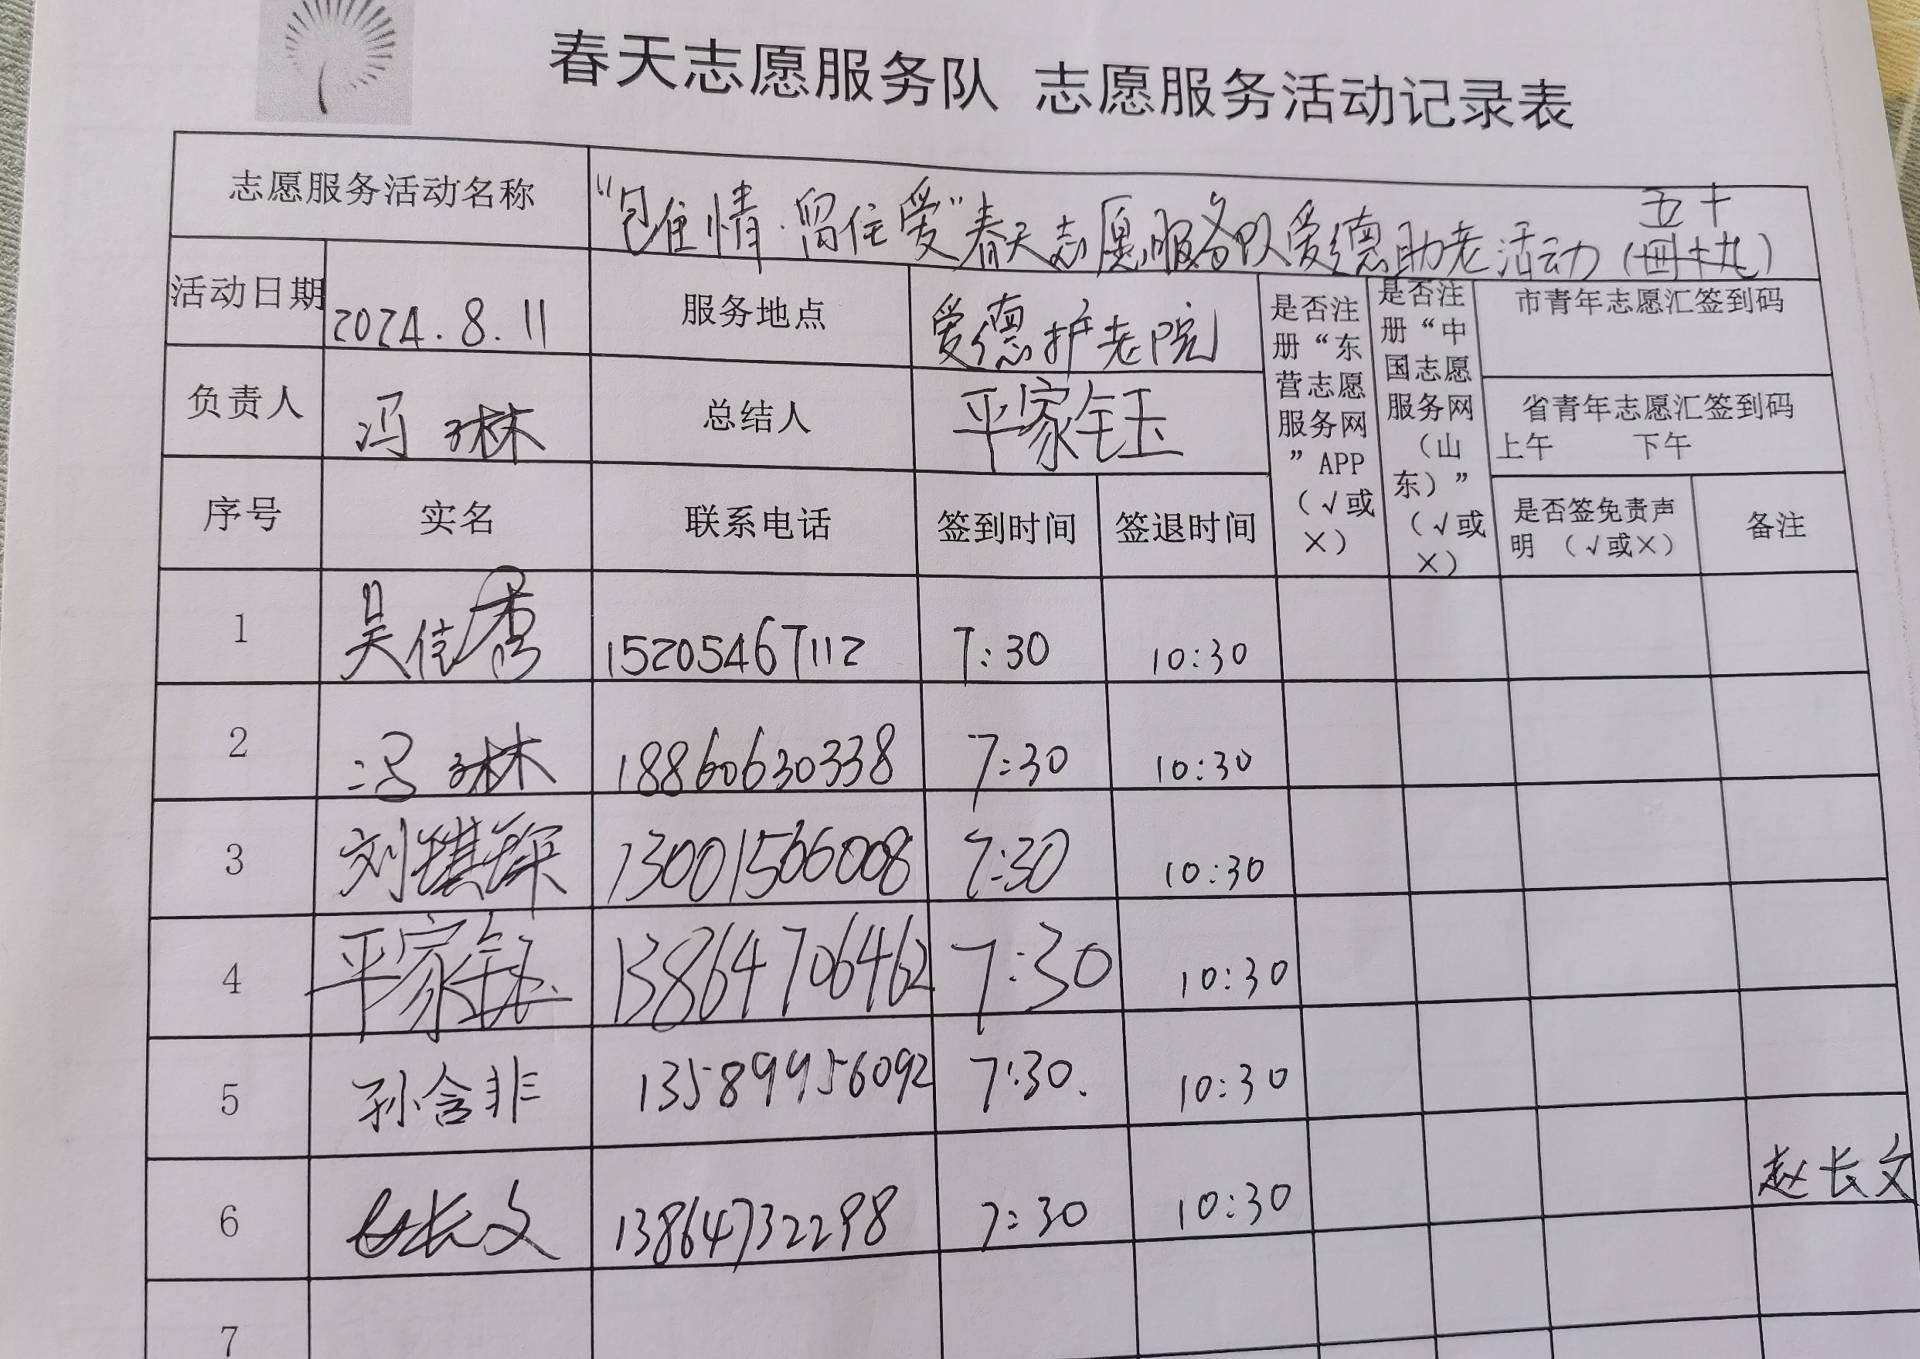 春天志愿服务队 志愿服务活动记录表
志愿服务活动名称 “包住情·留住爱”春天志愿服务队爱德助老活动(五十)
活动日期 2024.8.11 服务地点 爱德护老院
是否注册“东营志愿服务网”APP(√或×)
是否注册“中国志愿服务网(山东)”(√或×)
市青年志愿汇签到码
省青年志愿汇签到码
上午 下午
负责人 冯琳 总结人 平家钰
序号 实名 联系电话 签到时间 签退时间 是否签免责声明 (√或×) 备注
1 吴佳秀 15205467112 7:30 10:30
2 冯琳 18860630338 7:30 10:30
3 刘琪琛 13001506008 7:30 10:30
4 平家钰 13864706462 7:30 10:30
5 孙含非 13589956092 7:30. 10:30
6 赵长文 13864732298 7:30 10:30 赵长文
7